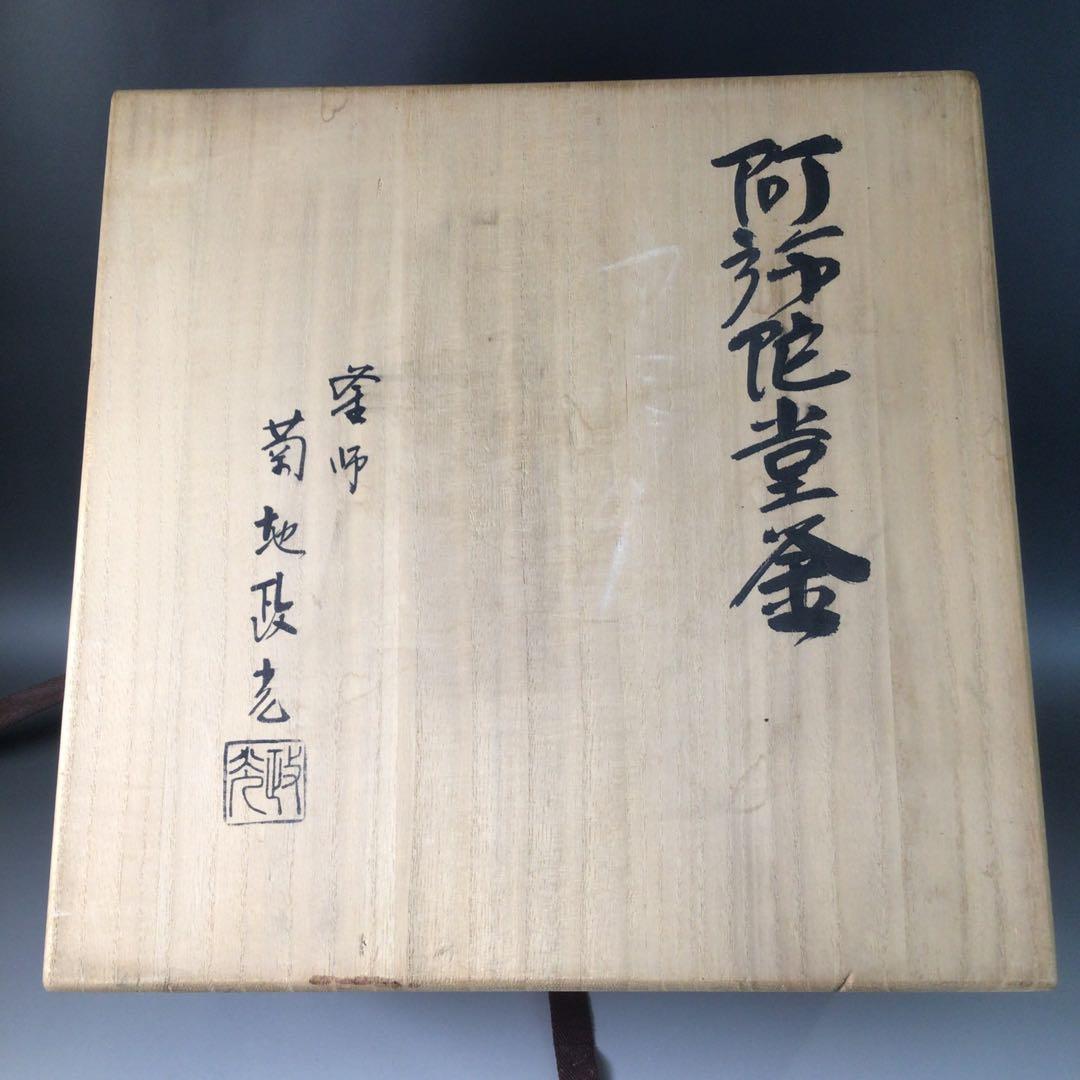 阿弥陀堂釜
釜師
菊地政光
政光